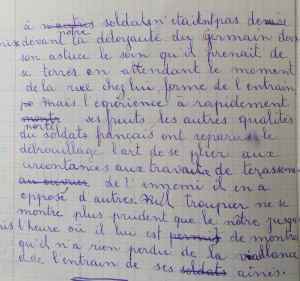 à notre soldats n'etaient pas de
mis devant la déloyauté du germain dev
son astuce le soin qu'il prenait de
se terrer en attendant le moment
de la ruée chez lui forme de l'entrain
mais l'expérience à rapidement
porter ses fruits les autres qualités
du soldats francais ont reparu le
débrouillage l'art de se plier aux
circontances aux travaux de terassem
de l'ennemi il en a
opposé d'autres. Nul troupier ne se
montre plus prudent que le nôtre jusqu
l'heure où il lui est de montre
qu'il n'a rien perdu de la
de l'entrain de ses soldats ainés.